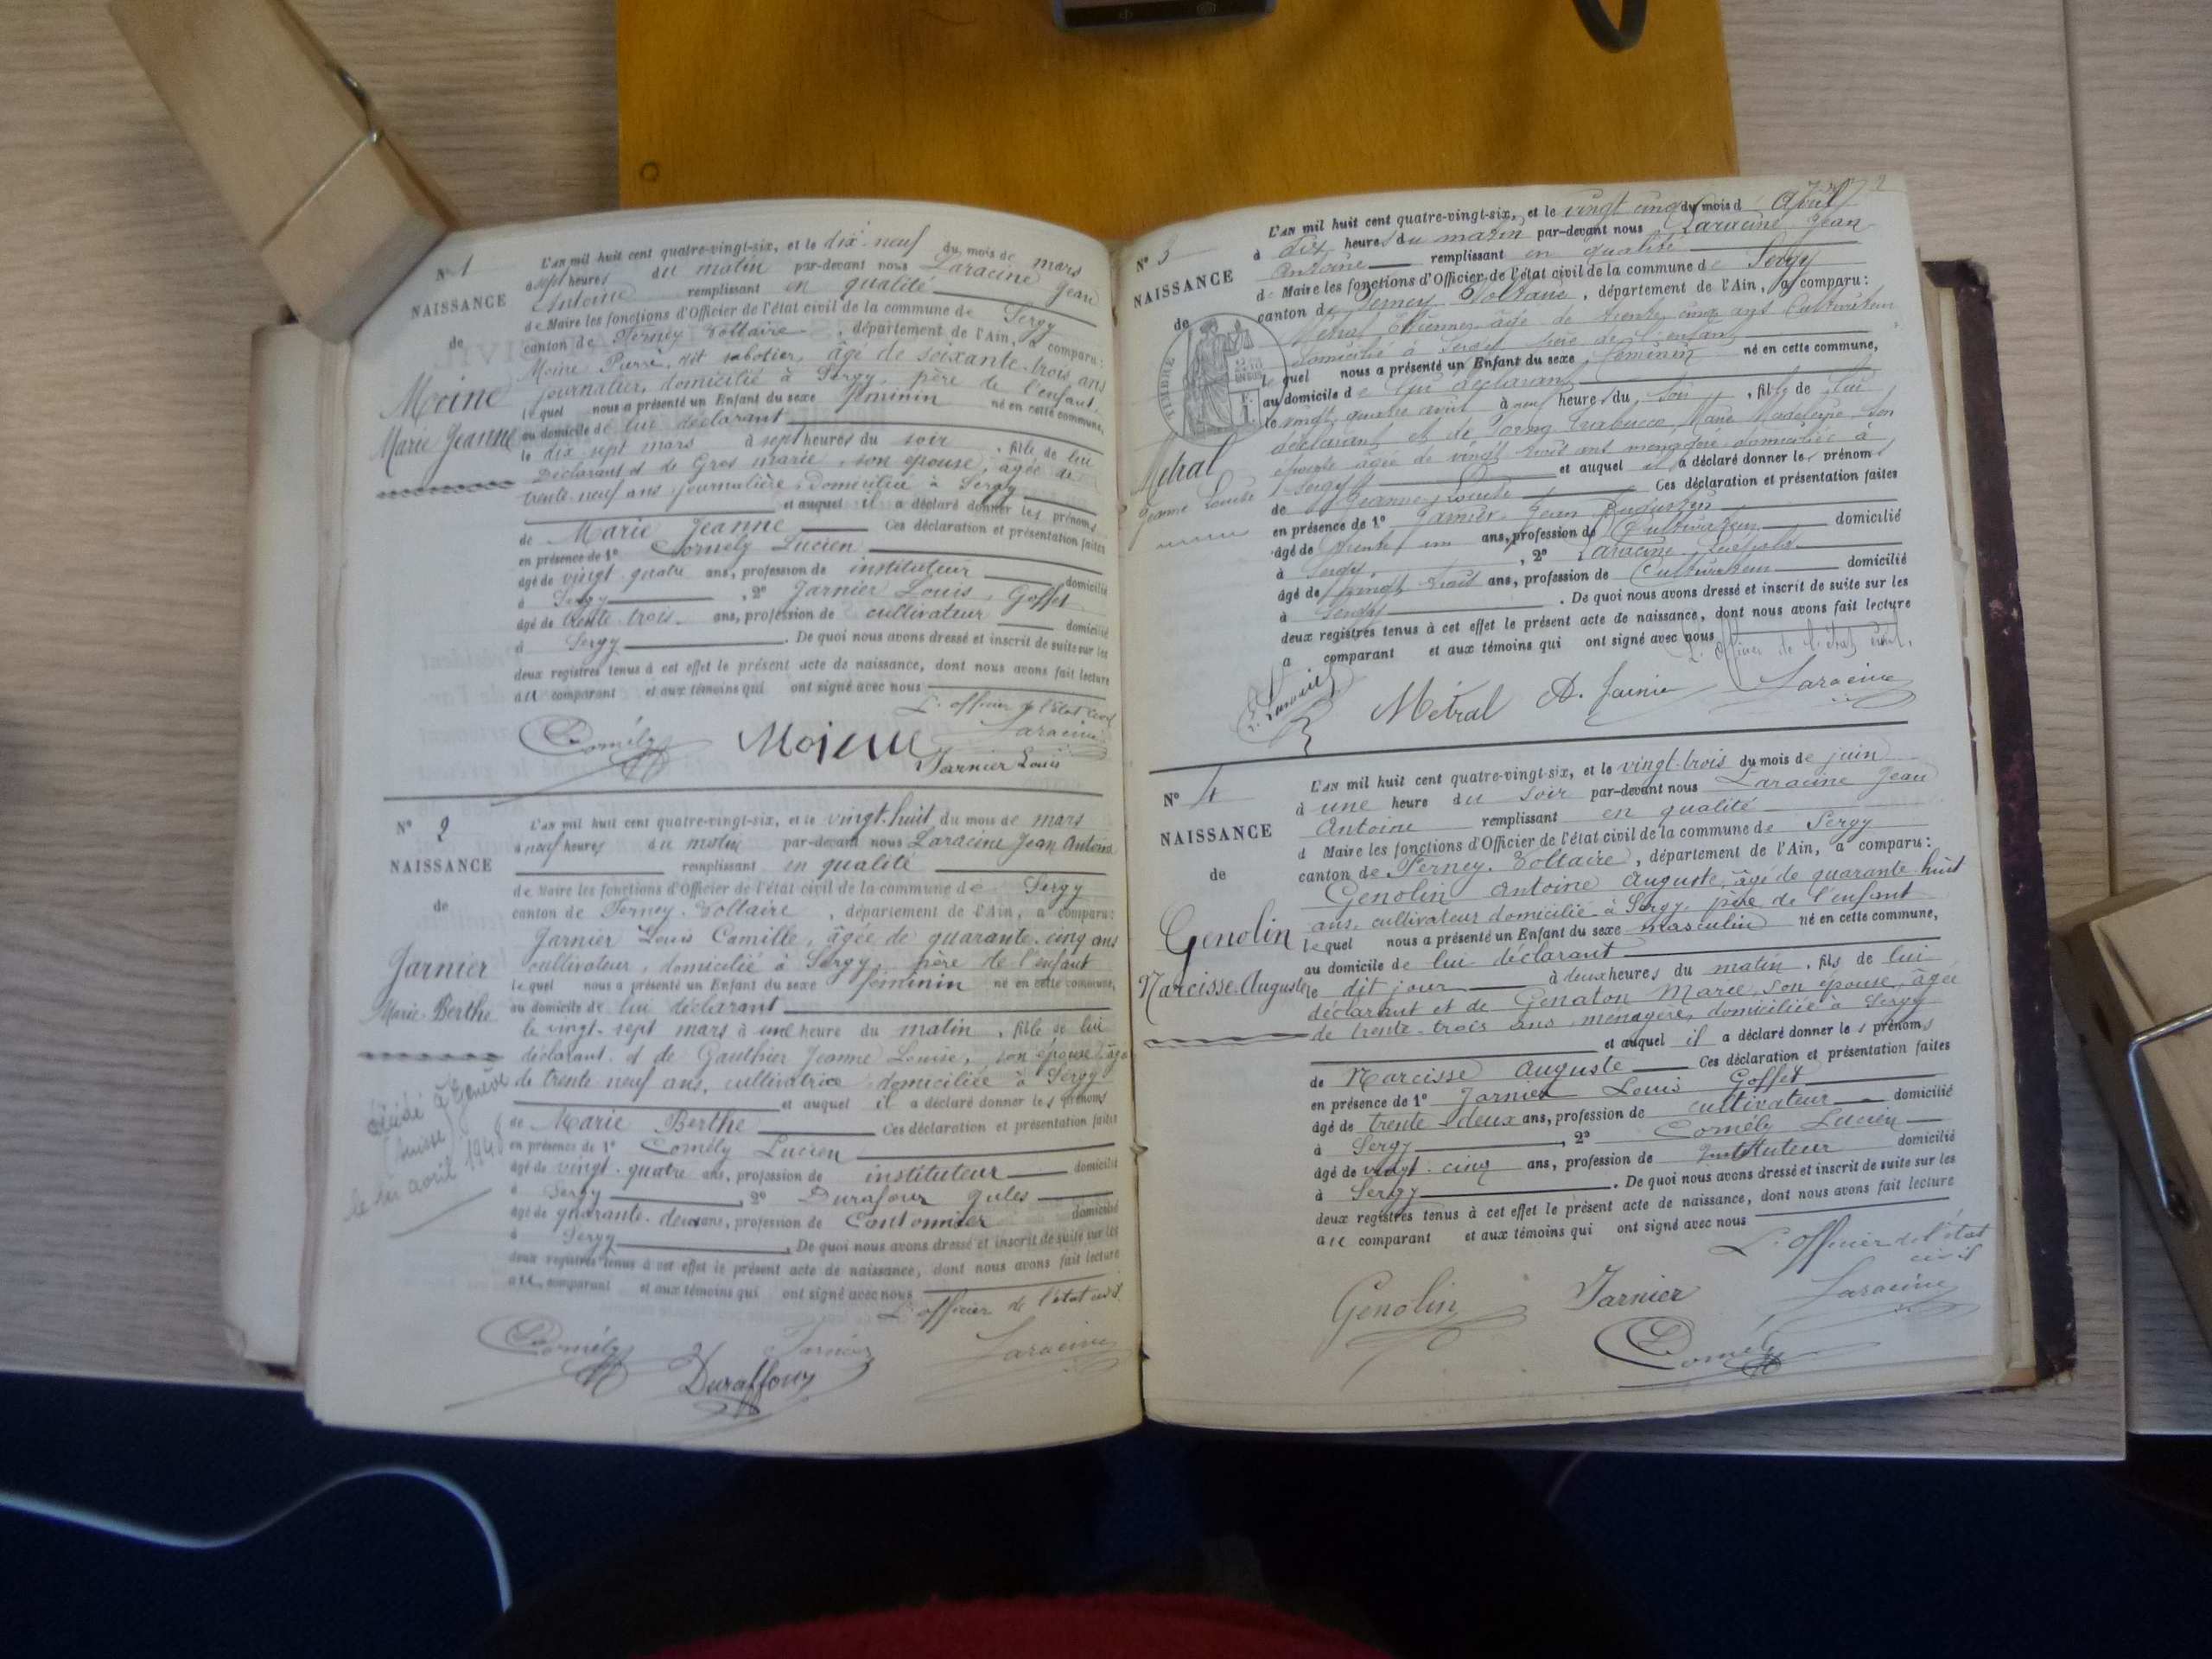 N° 1
NAISSANCE
de
Moine
Marie Jeanne
L'AN mil huit cent quatre-vingt-six, et le dix-neuf du mois de mars
à sept heures du matin par-devant nous Laracine Jean
Antoine remplissant en qualité
de Maire les fonctions d'Officier de l'état civil de la commune de Sergy
canton de Ferney Voltaire, département de l'Ain, a comparu:
Moine Pierre, dit sabotier, âgé de soixante-trois ans
journalier, domicilié à Sergy, père de l'enfant,
lequel nous a présenté un Enfant du sexe féminin né en cette commune,
au domicile de lui déclarant
le dix-sept mars à sept heures du soir, fille de lui
Déclarant et de Gros marie, son épouse, âgée de
trente-neuf ans journalière, domiciliée à Sergy
et auquel il a déclaré donner les prénoms
de Marie Jeanne Ces déclaration et présentation faites
en présence de 1° Comély Lucien
âgé de vingt-quatre ans, profession de instituteur domicilié
à Sergy, 2° Jarnier Louis, Goffet
âgé de trente-trois ans, profession de cultivateur domicilié
à Sergy. De quoi nous avons dressé et inscrit de suite sur les
deux registres tenus à cet effet le présent acte de naissance, dont nous avons fait lecture
au comparant et aux témoins qui ont signé avec nous
L'officier de l'état civil
Laracine
Comély Moine
Jarnier Louis
N° 2
NAISSANCE
de
Jarnier
Marie-Berthe
décédé à Genève
(Suisse)
le 1er avril 1940
L'AN mil huit cent quatre-vingt-six, et le vingt-huit du mois de mars
à neuf heures du matin par-devant nous Laracine Jean Antoine
remplissant en qualité
de Maire les fonctions d'Officier de l'état civil de la commune de Sergy
canton de Ferney-Voltaire, département de l'Ain, a comparu:
Jarnier Louis Camille, âgée de quarante-cinq ans
cultivateur, domicilié à Sergy, père de l'enfant
lequel nous a présenté un Enfant du sexe féminin né en cette commune,
au domicile de lui déclarant
le vingt-sept mars à une heure du matin, fille de lui
déclarant et de Gauthier Jeanne Louise, son épouse, âgée
de trente neuf ans, cultivatrice domiciliée à Sergy
et auquel il a déclaré donner les prénoms
de Marie Berthe Ces déclaration et présentation faites
en présence de 1° Comély Lucien
âgé de vingt-quatre ans, profession de instituteur domicilié
à Sergy, 2° Durafour Jules
âgé de quarante-deux ans, profession de Cantonnier domicilié
à Sergy. De quoi nous avons dressé et inscrit de suite sur les
deux registres tenus à cet effet le présent acte de naissance, dont nous avons fait lecture
au comparant et aux témoins qui ont signé avec nous
L'officier de l'état civil
Comély Jarnier Laracine
Duraffour
N° 3
NAISSANCE
de
TIMBRE
Métral
Jeanne Louise
L'AN mil huit cent quatre-vingt-six, et le vingt cinq du mois d'Avril
à dix heures du matin par-devant nous Laracine Jean
Antoine remplissant en qualité
de Maire les fonctions d'Officier de l'état civil de la commune de Sergy
canton de Ferney Voltaire, département de l'Ain, a comparu:
Métral Etienne, âgé de trente cinq ans Cultivateur
domicilié à Sergy père de l'enfant
lequel nous a présenté un Enfant du sexe féminin né en cette commune,
au domicile de lui déclarant
le vingt quatre avril à neuf heures du soir, fille de lui
déclarant et de Trabucco Marie Madeleine son
épouse âgée de vingt trois ans ménagère domiciliée à
Sergy et auquel il a déclaré donner les prénoms
de Jeanne Louise Ces déclaration et présentation faites
en présence de 1° Jarnier Jean Augustin
âgé de trente un ans, profession de Cultivateur domicilié
à Sergy, 2° Laracine
âgé de vingt trois ans, profession de Cultivateur domicilié
à Sergy. De quoi nous avons dressé et inscrit de suite sur les
deux registres tenus à cet effet le présent acte de naissance, dont nous avons fait lecture
a comparant et aux témoins qui ont signé avec nous
L'officier de l'état civil.
Métral A. Jarnier Laracine
N° 4
NAISSANCE
de
Genolin
Narcisse-Auguste
L'AN mil huit cent quatre-vingt-six, et le vingt-trois du mois de juin
à une heure du soir par-devant nous Laracine Jean
Antoine remplissant en qualité
d Maire les fonctions d'Officier de l'état civil de la commune de Sergy
canton de Ferney-Voltaire, département de l'Ain, a comparu:
Genolin Antoine Auguste, âgé de quarante-huit
ans, cultivateur domicilié à Sergy, père de l'enfant
lequel nous a présenté un Enfant du sexe masculin né en cette commune,
au domicile de lui déclarant
le dit jour à deux heures du matin, fils de lui
déclarant et de Genaton Marie, son épouse, âgée
de trente-trois ans, ménagère, domiciliée à Sergy
et auquel il a déclaré donner les prénoms
de Narcisse Auguste Ces déclaration et présentation faites
en présence de 1° Jarnier Louis Goffet
âgé de trente-deux ans, profession de cultivateur domicilié
à Sergy, 2° Comély Lucien
âgé de vingt-cinq ans, profession de Instituteur domicilié
à Sergy. De quoi nous avons dressé et inscrit de suite sur les
deux registres tenus à cet effet le présent acte de naissance, dont nous avons fait lecture
au comparant et aux témoins qui ont signé avec nous
L'officier de l'état
civil
Genolin Jarnier Laracine
Comély